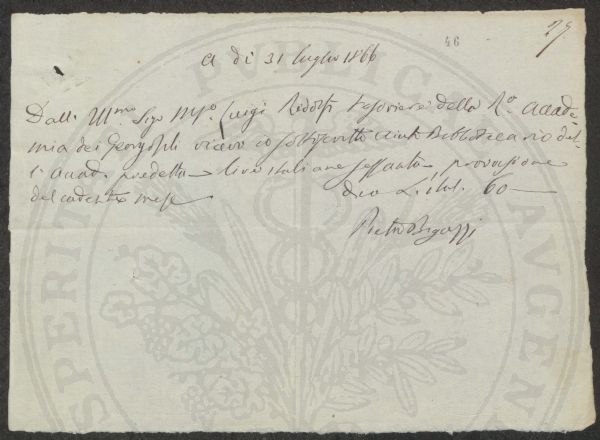 46
27
A dì 31 luglio 1866
Dall' Ill.mo Sig.r M.se Luigi Ridolfi Tesoriere della R.a Accade-
mia dei Georgofili ricevo io sottoscritto aiuto Bibliotecario del-
l' Accad. predetta lire italiane sessanta provvisione
del cadente mese dico L. ital. 60
Pietro Bigazzi
PVBLICAE
PROSPERITATIS AVGENDAE